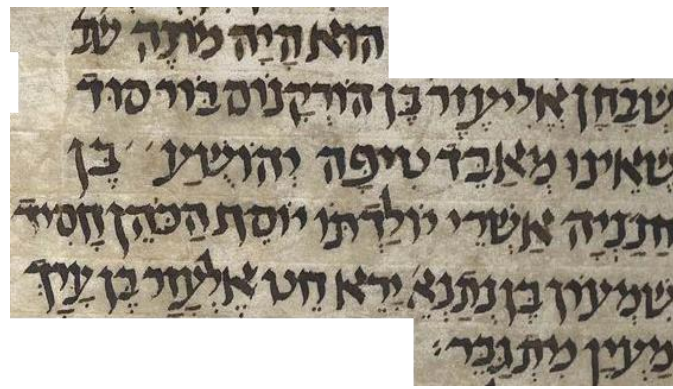 הוּא הָיָה מוֹנֶה שב
שֶׁבַחָן אֱלִיעֶזֶר בֶּן הוֹרְקָנוֹס בּוֹר סוּד
שֶׁאֵינוּ מְאַבֵּד טִיפָּה יְהוֹשֻׁעַ בֶּן
חֲנַנְיָה אַשְׁרֵי יוֹלַדְתּוֹ יוֹסֵה הַכֹּהֵן חָסִיד
שִׁמְעוֹן בֶּן נְתַנְאֵ יְרֵא חֵט אֶלְעָזָר בֶּן עֲרָךְ
מַעְיָן מִתְגַּבֵּר